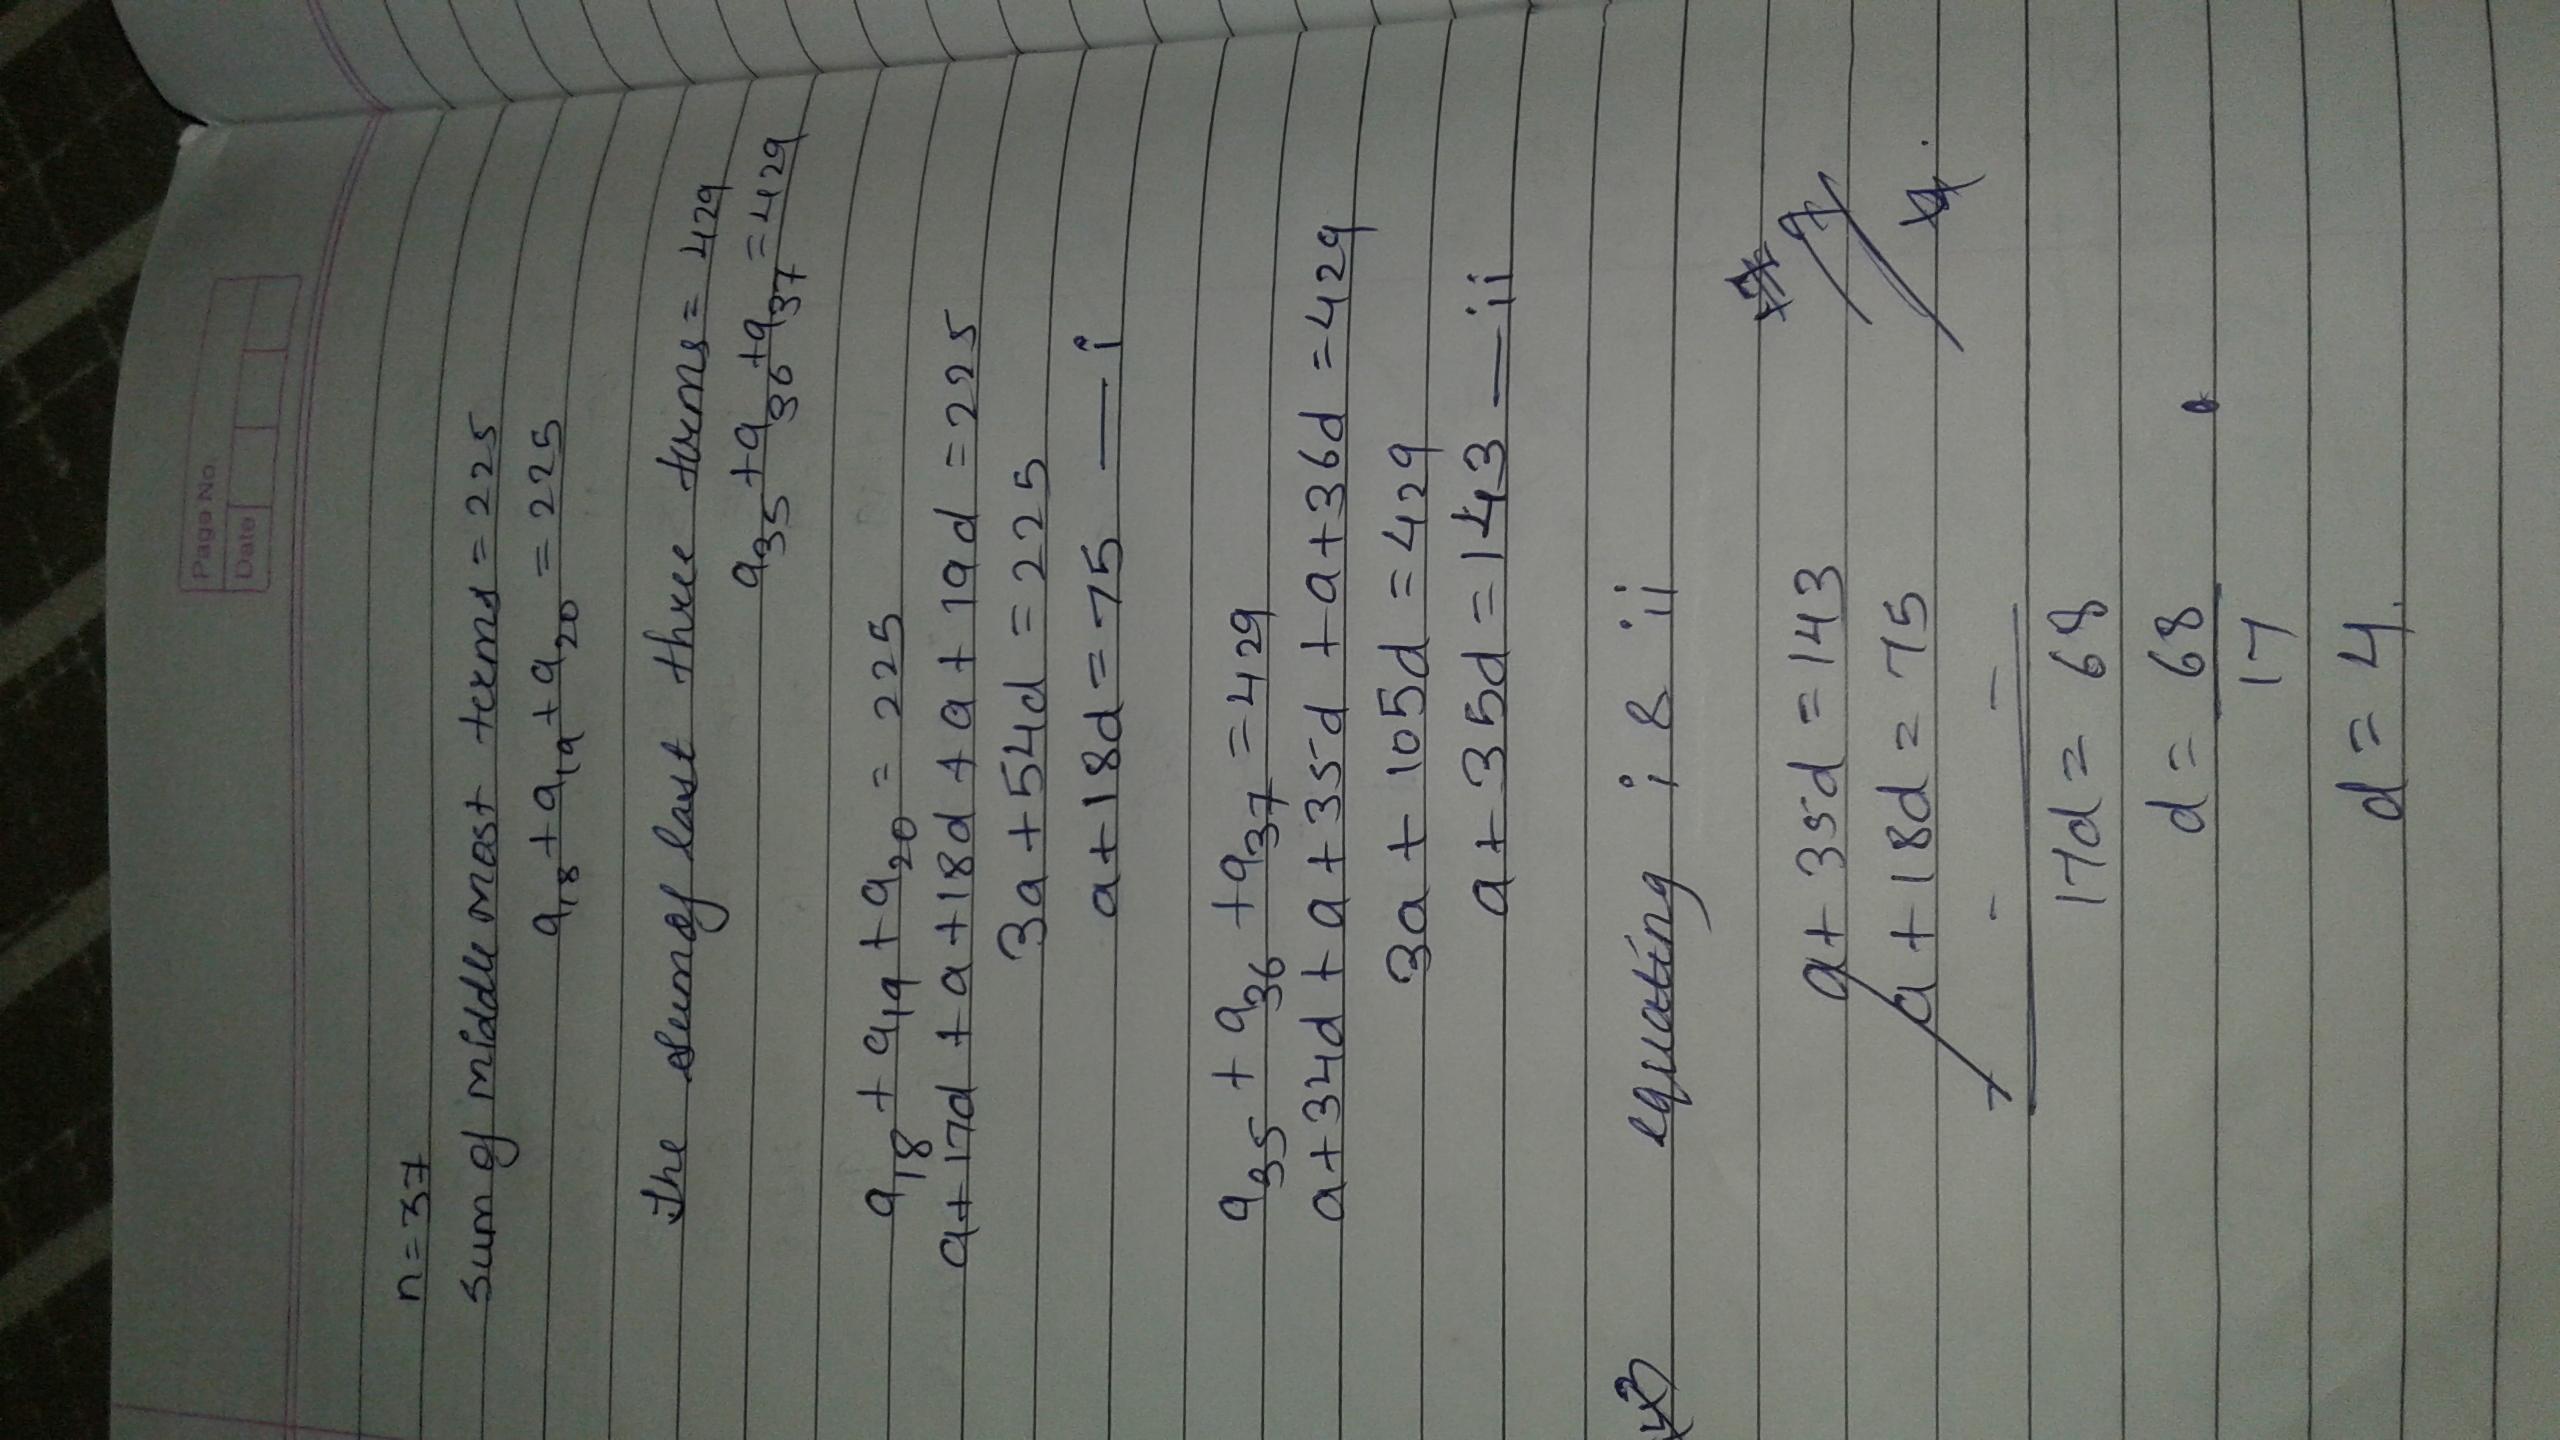 Page No.
Date
n = 37
Sum of middle most terms = 225
a18 + a19 + a20 = 225
The sum of last three terms = 429
a35 + a36 + a37 = 429
a18 + a19 + a20 = 225
a+17d + a+18d + a+19d = 225
3a + 54d = 225
a+18d = 75 — i
a35 + a36 + a37 = 429
a+34d + a+35d + a+36d = 429
3a + 105d = 429
a + 35d = 143 — ii
equating i & ii
a+ 35d = 143
a + 18d = 75
- - -
17d = 68
d = 68
17
d = 4